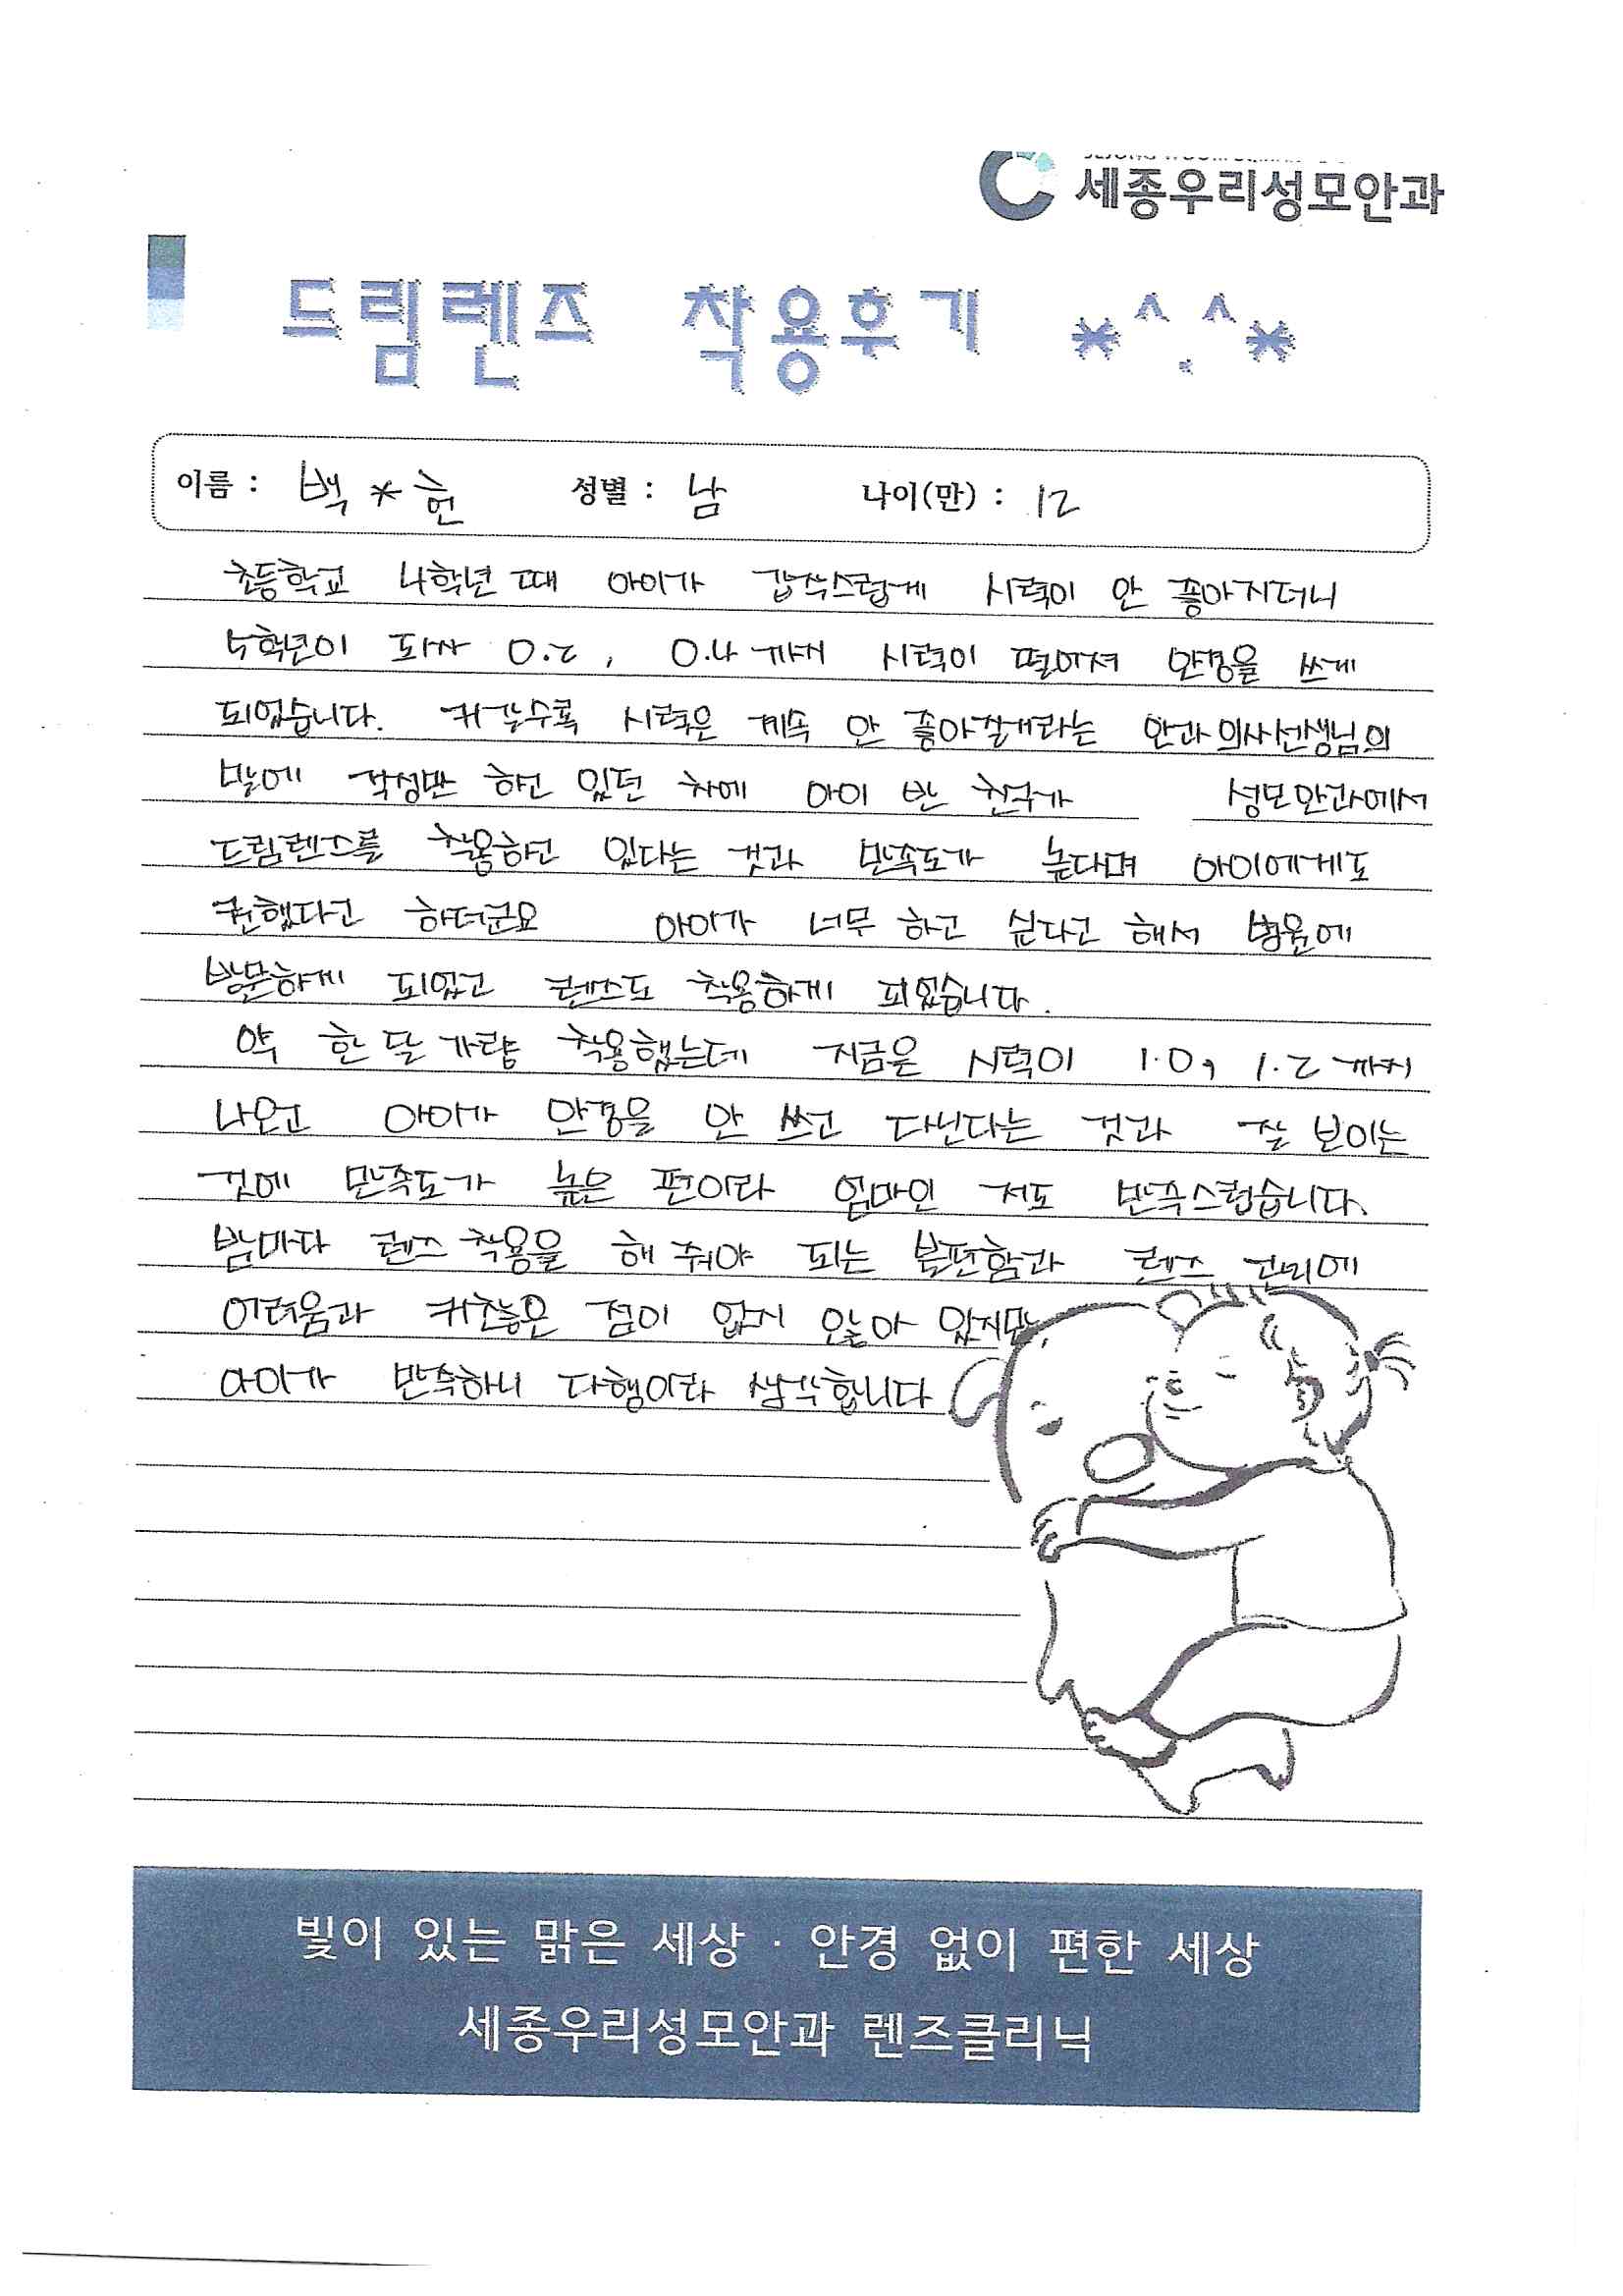 세종우리성모안과
드림렌즈 착용후기 *^.^*
이름 : 백*헌 성별 : 남 나이(만) : 12
초등학교 4학년 때 아이가 갑작스럽게 시력이 안 좋아지더니
5학년이 되자 0.2, 0.4까지 시력이 떨어져 안경을 쓰게
되었습니다. 커갈수록 시력은 계속 안 좋아질거라는 안과 의사선생님의
말에 걱정만 하고 있던 차에 아이 반 친구가 성모안과에서
드림렌즈를 착용하고 있다는 것과 만족도가 높다며 아이에게도
권했다고 하더군요 아이가 너무 하고 싶다고 해서 병원에
방문하게 되었고 렌즈도 착용하게 되었습니다.
약 한 달 가량 착용했는데 지금은 시력이 1.0, 1.2까지
나오고 아이가 안경을 안 쓰고 다닌다는 것과 잘 보이는
것에 만족도가 높은 편이라 엄마인 저도 만족스럽습니다.
밤마다 렌즈 착용을 해 줘야 되는 불편함과 렌즈 관리에
어려움과 귀찮은 점이 없지 않아 있지만,
아이가 만족하니 다행이라 생각합니다
빛이 있는 맑은 세상 · 안경 없이 편한 세상
세종우리성모안과 렌즈클리닉